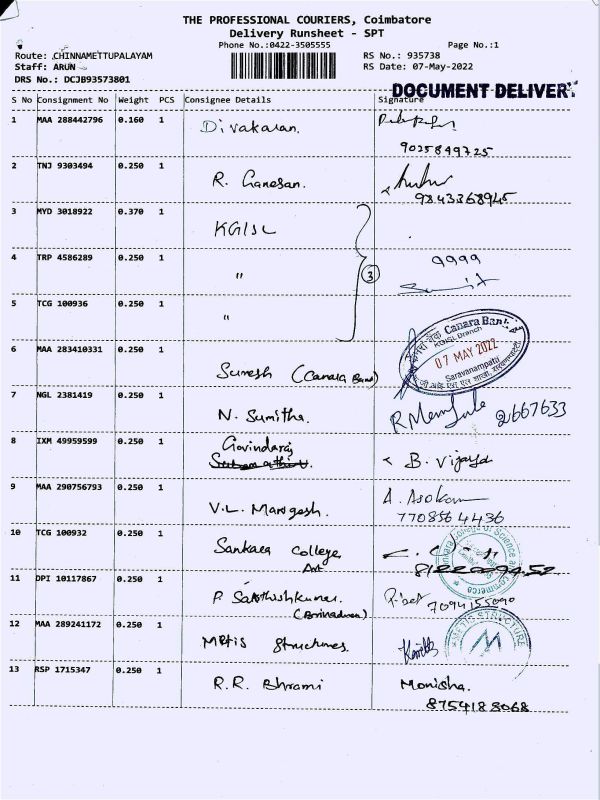 THE PROFESSIONAL COURIERS, Coimbatore
Delivery Runsheet - SPT
Phone No.:0422-3505555
Page No.:1
Route: CHINNAMETTUPALAYAM
RS No.: 935738
Staff: ARUN
RS Date: 07-May-2022
DRS No.: DCJB93573801
DOCUMENT DELIVERY
S No Consignment No Weight PCS Consignee Details Signature
1 MAA 288442796 0.160 1 Divakaran.
9025849725
2 TNJ 9303494 0.250 1 R. Ganesan.
9843368945
3 MYD 3018922 0.370 1 KGISL
4 TRP 4586289 0.250 1 " 9999
3
Sumit
5 TCG 100936 0.250 1 "
6 MAA 283410331 0.250 1 Suresh (Canara Bank)
केनरा बैंक Canara Bank
KGISL Branch
07 MAY 2022
Saravanampatti
7 NGL 2381419 0.250 1 N. Sumitha. 2667633
8 IXM 49959599 0.250 1 Govindaraj
B. Vijaya
9 MAA 290756793 0.250 1 V.L. Marogesh. A. Asokan
7708564436
10 TCG 100932 0.250 1 Sankara College
Art
of Science and Commerce
11 DPI 10117867 0.250 1 P Sakthishkumar.
7094155090
12 MAA 289241172 0.250 1 Metis Structures.
METIS STRUCTURE
M
13 RSP 1715347 0.250 1 R.R. Bhrami Monisha.
8754188068